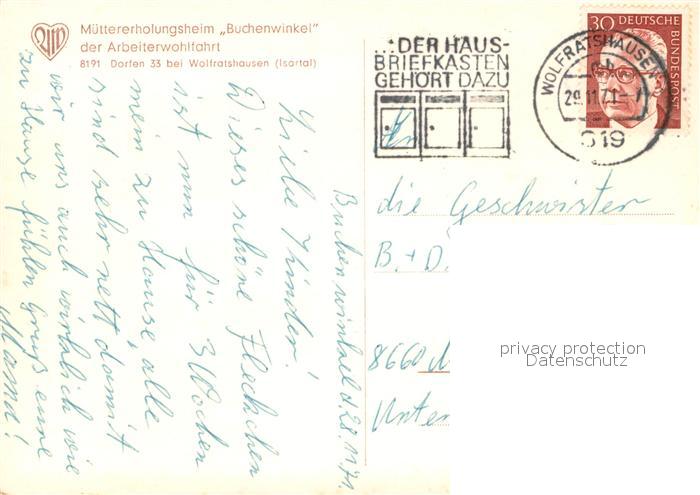 Müttererholungsheim „Buchenwinkel"
der Arbeiterwohlfahrt
8191 Dorfen 33 bei Wolfratshausen (Isartal)
...DER HAUS-
BRIEFKASTEN
GEHÖRT DAZU
WOLFRATSHAUSEN
29.11.71
819
30 DEUTSCHE
BUNDESPOST
Buchenwinkel d. 28.11.71
Liebe Kinder!
Dieses schöne Fleckchen
ist nun für 3 Wochen
mein zu Hause, alle
sind sehr nett damit
wir uns auch wirklich wie
zu Hause fühlen Gruß eure
Mama!
An
die Geschwister
B. + D.
8660
Unter
privacy protection
Datenschutz